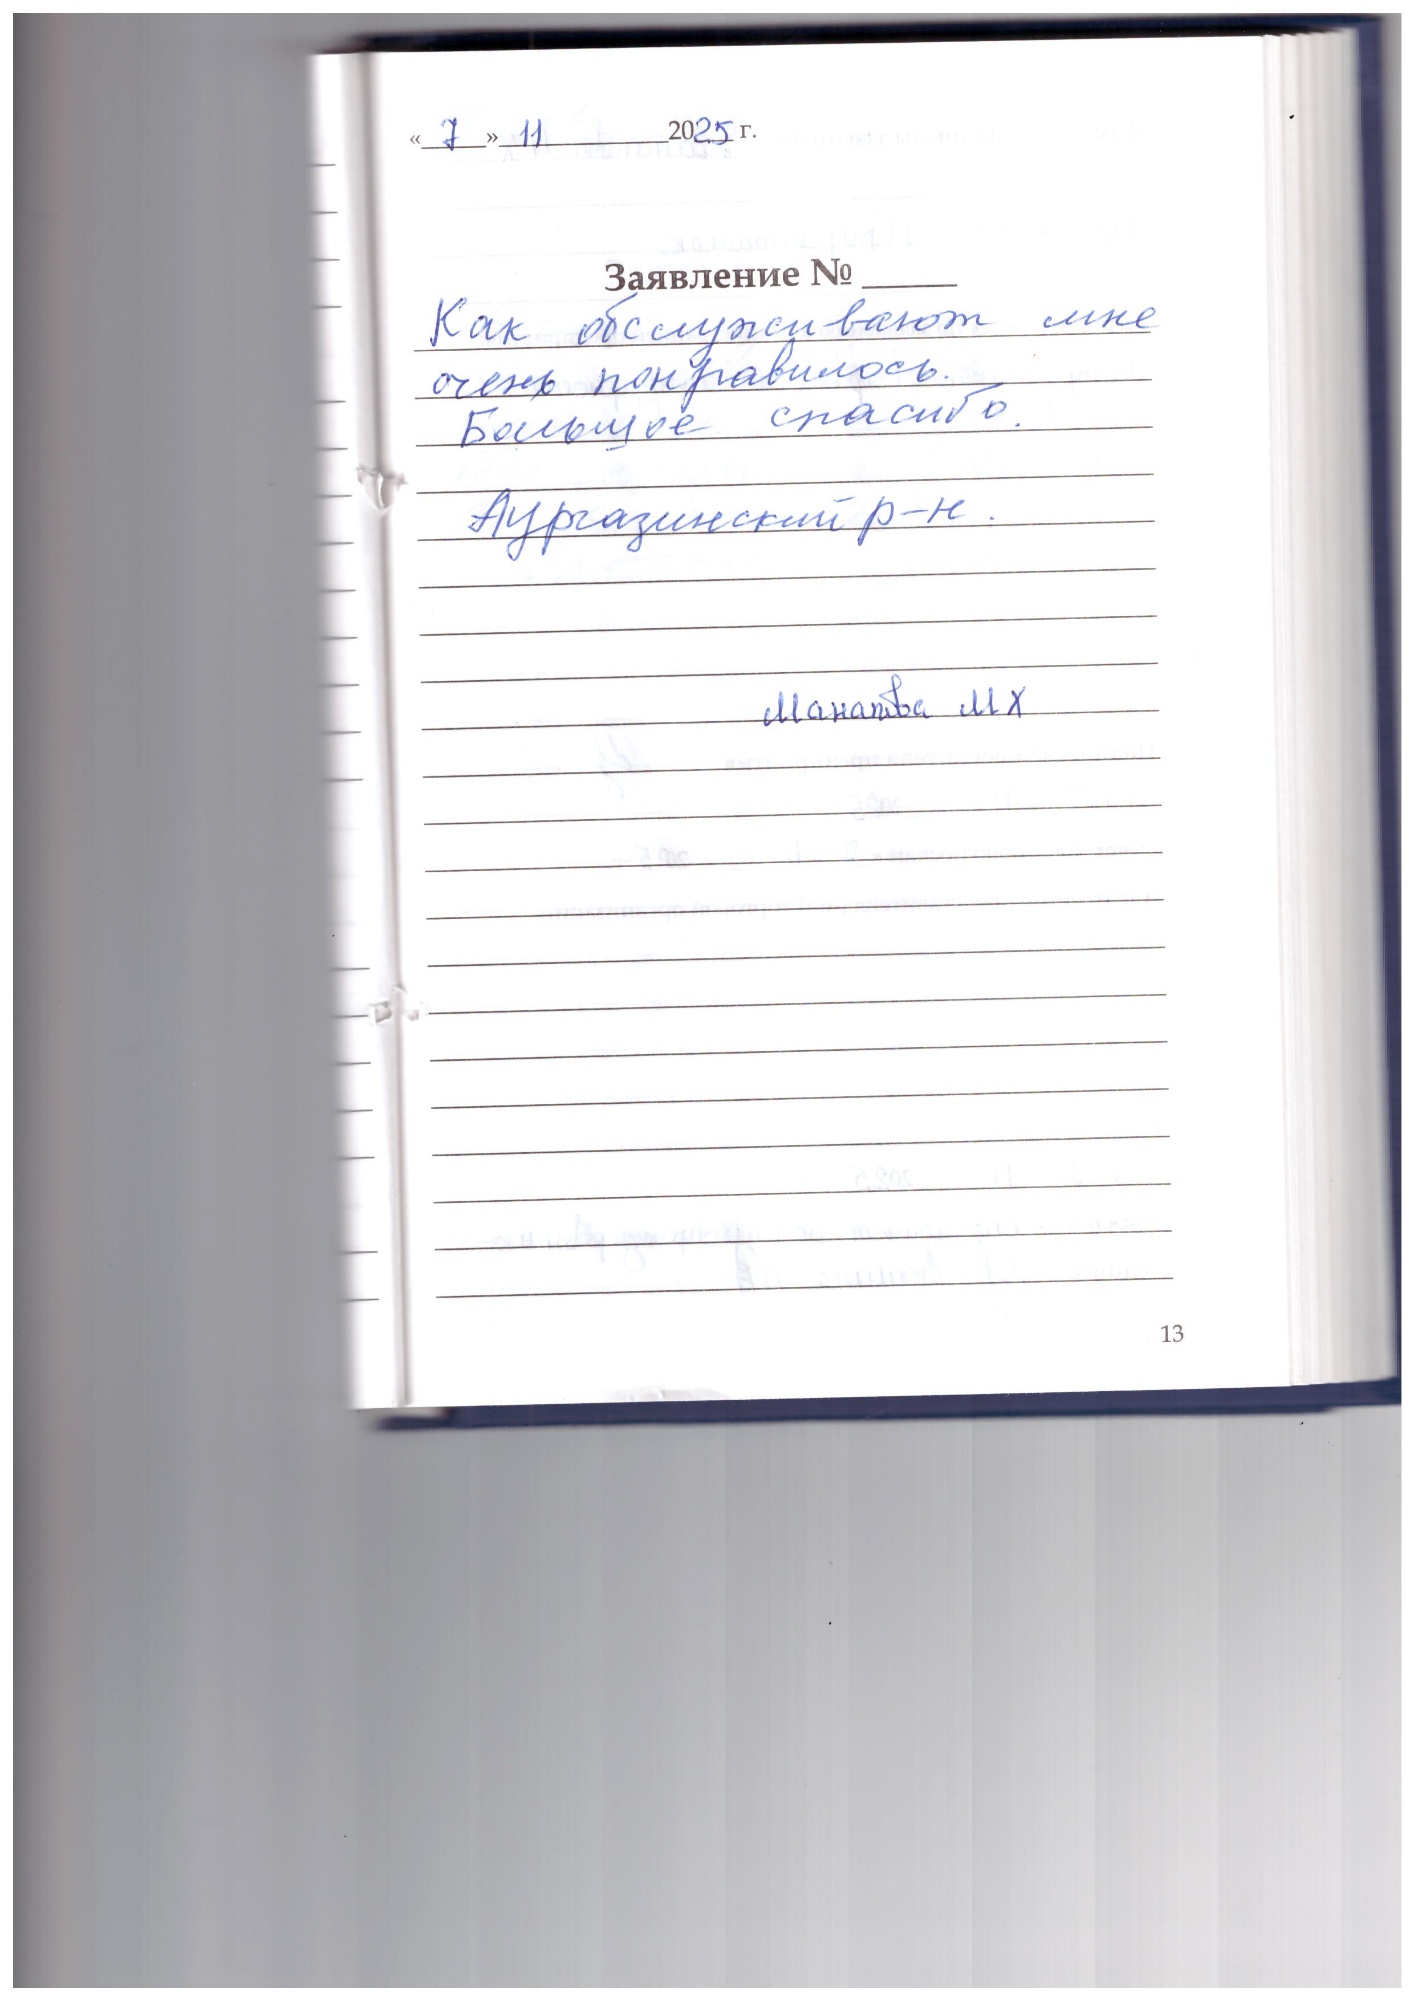 « 7 » 11 2025 г.
Заявление № _____
Как обслуживают мне
очень понравилось.
Большое спасибо.
Аургазинский р-н.
МХ
13